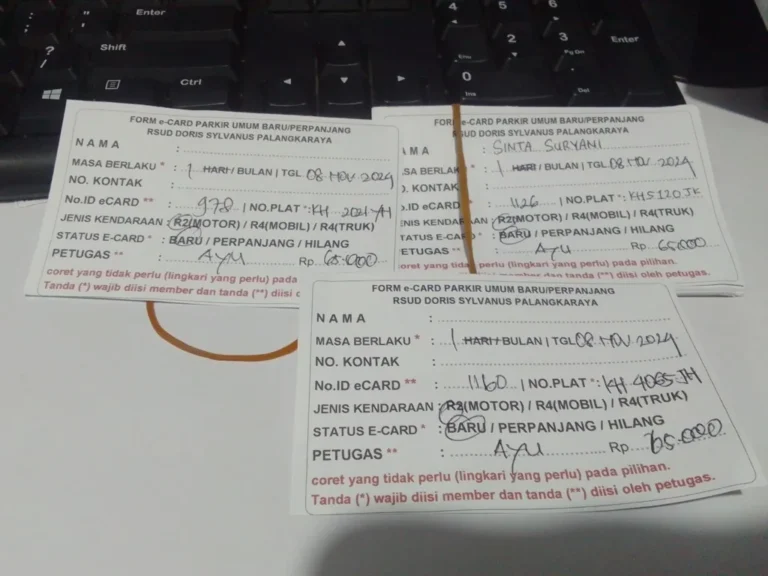 Enter
Shift
Ctrl
?
/
4
5
6
2
3
Enter
0
Ins
Del
Pg Dn
FORM e-CARD PARKIR UMUM BARU/PERPANJANG
RSUD DORIS SYLVANUS PALANGKARAYA
NAMA :
MASA BERLAKU * : 1 HARI / BULAN | TGL 08 NOV 2024
NO. KONTAK :
No.ID eCARD ** : 978 | NO.PLAT * : KH 2021 AH
JENIS KENDARAAN : R2(MOTOR) / R4(MOBIL) / R4(TRUK)
STATUS E-CARD * : BARU / PERPANJANG / HILANG
PETUGAS ** : AYU Rp. 65.000
coret yang tidak perlu (lingkari yang perlu) pada
Tanda (*) wajib diisi member dan tanda (**) diisi
FORM e-CARD PARKIR UMUM BARU/PERPANJANG
RSUD DORIS SYLVANUS PALANGKARAYA
AMA : SINTA SURYANI
ASA BERLAKU * : 1 HARI / BULAN | TGL 08 NOV 2024
O. KONTAK :
o.ID eCARD ** : 1126 | NO.PLAT * : KH5120JK
ENIS KENDARAAN : R2(MOTOR) / R4(MOBIL) / R4(TRUK)
TATUS E-CARD * : BARU / PERPANJANG / HILANG
ETUGAS ** : AYU Rp. 65.000
oret yang tidak perlu (lingkari yang perlu) pada pilihan.
diisi member dan tanda (**) diisi oleh petugas.
FORM e-CARD PARKIR UMUM BARU/PERPANJANG
RSUD DORIS SYLVANUS PALANGKARAYA
NAMA :
MASA BERLAKU * : 1 HARI / BULAN | TGL 08 NOV 2024
NO. KONTAK :
No.ID eCARD ** : 1160 | NO.PLAT * : KH 4065 JH
JENIS KENDARAAN : R2(MOTOR) / R4(MOBIL) / R4(TRUK)
STATUS E-CARD * : BARU / PERPANJANG / HILANG
PETUGAS ** : AYU Rp. 65.000
coret yang tidak perlu (lingkari yang perlu) pada pilihan.
Tanda (*) wajib diisi member dan tanda (**) diisi oleh petugas.